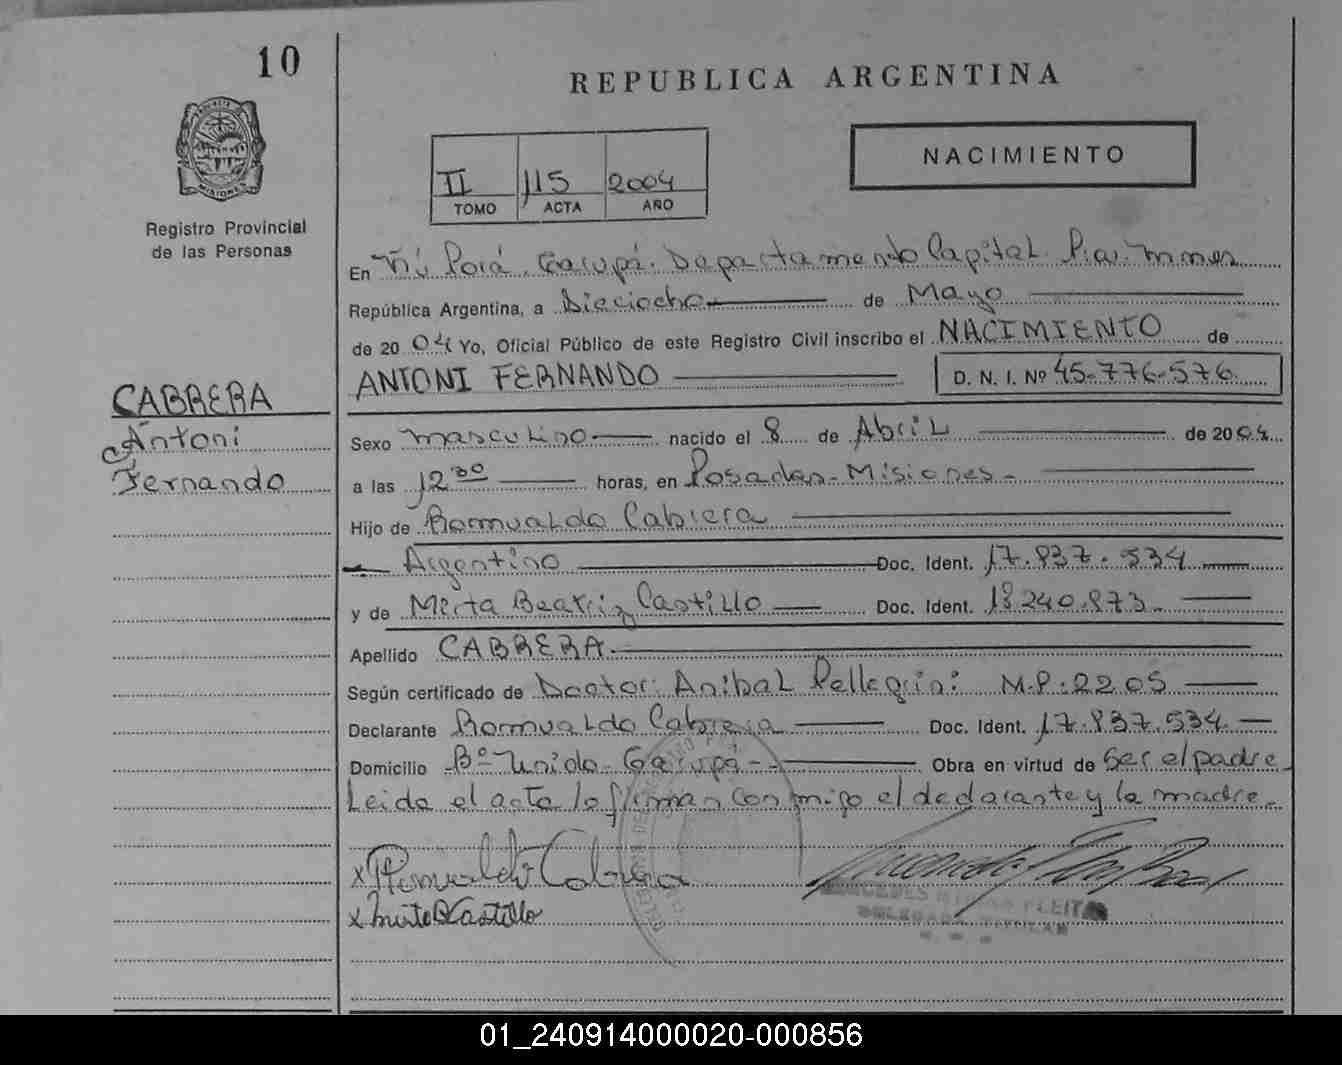 10
REPUBLICA ARGENTINA
NACIMIENTO
II 115 2004
TOMO ACTA AÑO
PROVINCIA DE
MISIONES
Registro Provincial
de las Personas
En Ñú Porá. Garupá. Departamento Capital. Pcia. Mnes
República Argentina, a Dieciocho de Mayo
de 2004 Yo, Oficial Público de este Registro Civil inscribo el NACIMIENTO de
ANTONI FERNANDO D. N. I. Nº 45-776-576
CABRERA
Antoni
Fernando
Sexo masculino nacido el 8 de Abril de 2004
a las 12 30 horas, en Posadas-Misiones-
Hijo de Romualdo Cabrera
Argentino Doc. Ident. 17.837.534
y de Mirta Beatriz Castillo Doc. Ident. 18.240.873.
Apellido CABRERA
Según certificado de Doctor: Anibal Pellegrini M.P:2205
Declarante Romualdo Cabrera Doc. Ident. 17.837.534
Domicilio Bº Unido-Garupá- Obra en virtud de Ser el padre
Leida el acta la firman conmigo el declarante y la madre-
x Romualdo Cabrera
x Mirta B Castillo
MERCEDES FLEITAS
DELEGADA TITULAR
01_240914000020-000856